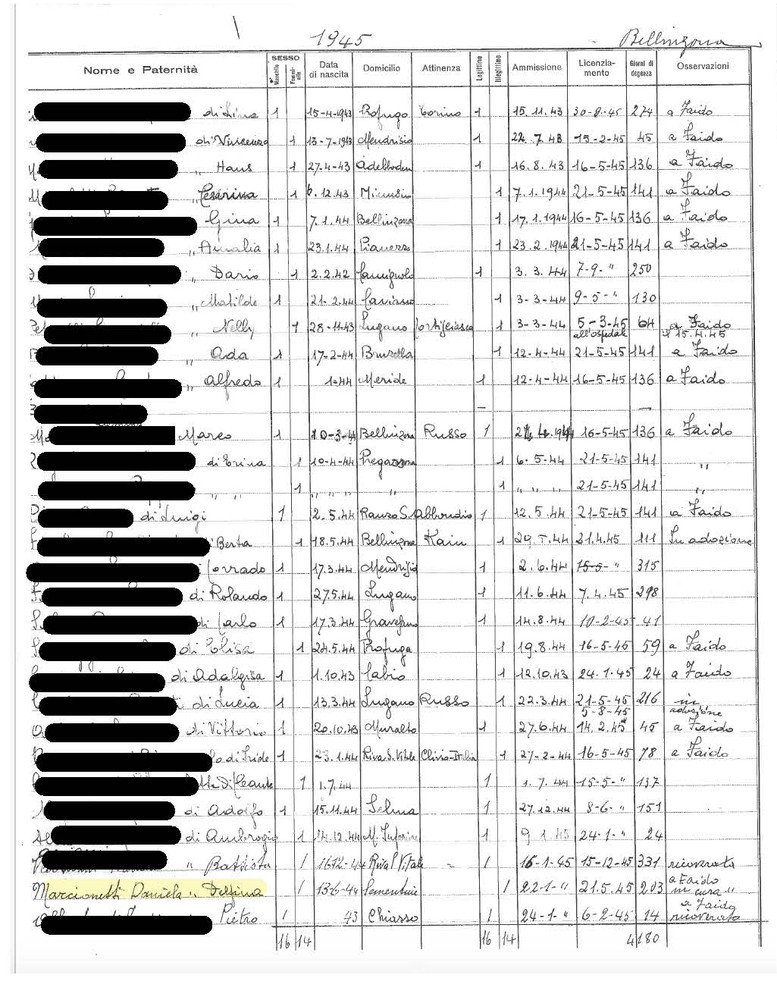 1945 - Bellinzona
Nome e Paternità SESSO Maschile Femminile Data di nascita Domicilio Attinenza Legittimo Illegittimo Ammissione Licenziamento Giorni di degenza Osservazioni
di Lina 1 15-4-1943 Profugo Torino 1 15.11.43 30-8-45 274 a Faido
di Vincenzo 1 13-7-1943 Mendrisio 1 22.7.43 15-2-45 45 a Faido
" Hans 1 27-4-43 Adelboden 1 16.8.43 16-5-45 136 a Faido
" Cesarina 1 6.12.43 Minusio 1 7.1.1944 21-5-45 141 a Faido
" Gina 1 7.1.44 Bellinzona 1 17.1.1944 16-5-45 136 a Faido
" Amalia 1 23.1.44 1 23.2.1944 21-5-45 141 a Faido
" Dario 1 2.2.42 Camignolo 1 3.3.44 7-9-" 250
" Matilde 1 21-2-44 Caviano 1 3-3-44 9-5-" 130
" Nelly 1 28-11-43 Lugano 1 3-3-44 5-3-45 all'ospedale 64 a Faido il 15.4.45
" Ada 1 17-2-44 Bruzella 1 12-4-44 21-5-45 141 a Faido
" Alfredo 1 1-44 Meride 1 12-4-44 16-5-45 136 a Faido
— —
Marco 1 10-3-4 Bellinzona Russo 1 16-5-45 136 a Faido
di Erina 1 10-4-44 Pregassona 1 6.5.44 21-5-45 141 "
" " 1 " " " " 1 " " " 21-5-45 141 "
di Luigi 1 2.5.44 1 12.5.44 21-5-45 141 a Faido
di Berta 1 18.5.44 Bellinzona Kain 1 29.5.44 21.4.45 111 In adozione
Corrado 1 17.3.44 Mendrisio 1 2.6.44 15-5-" 315
di Rolando 1 27.5.44 Lugano 1 11.6.44 7.4.45 298
di Carlo 1 17.3.44 Gravesano 1 14.8.44 10-2-45 41
di Elisa 1 24.5.44 Profuga 1 19.8.44 16-5-45 59 a Faido
di Adalgisa 1 1.10.43 Cabbio 1 12.10.43 24.1.45 24 a Faido
di Lucia 1 13.3.44 Lugano Russo 1 22.3.44 21-5-45 5-8-45 216 in adozione
di Vittorio 1 20.10.43 Muralto 1 27.6.44 14.2.45 45 a Faido
di Iride 1 23.1.44 Riva S. Vitale Clivio-Italia 1 27-2-44 16-5-45 78 a Faido
1 1.7.44 1 1.7.44 15-5-" 137
di Adolfo 1 15.11.44 Selma 1 27.12.44 8-6-" 151
di Ambrogio 1 14.12.44 1 9.1.45 24-1-" 24
" Battista 1 16.12-44 Riva S. Vitale - 1 16-1-45 15-12-45 331 ricoverato a Faido
Marcionetti Daniela " Delfina 1 13-6-44 Sementina 1 22-1-" 21.5.45 203 in cura " a Faido
Pietro 1 43 Chiasso 1 24-1-" 6-2-45 14 ricoverato
16 14 16 14 4180